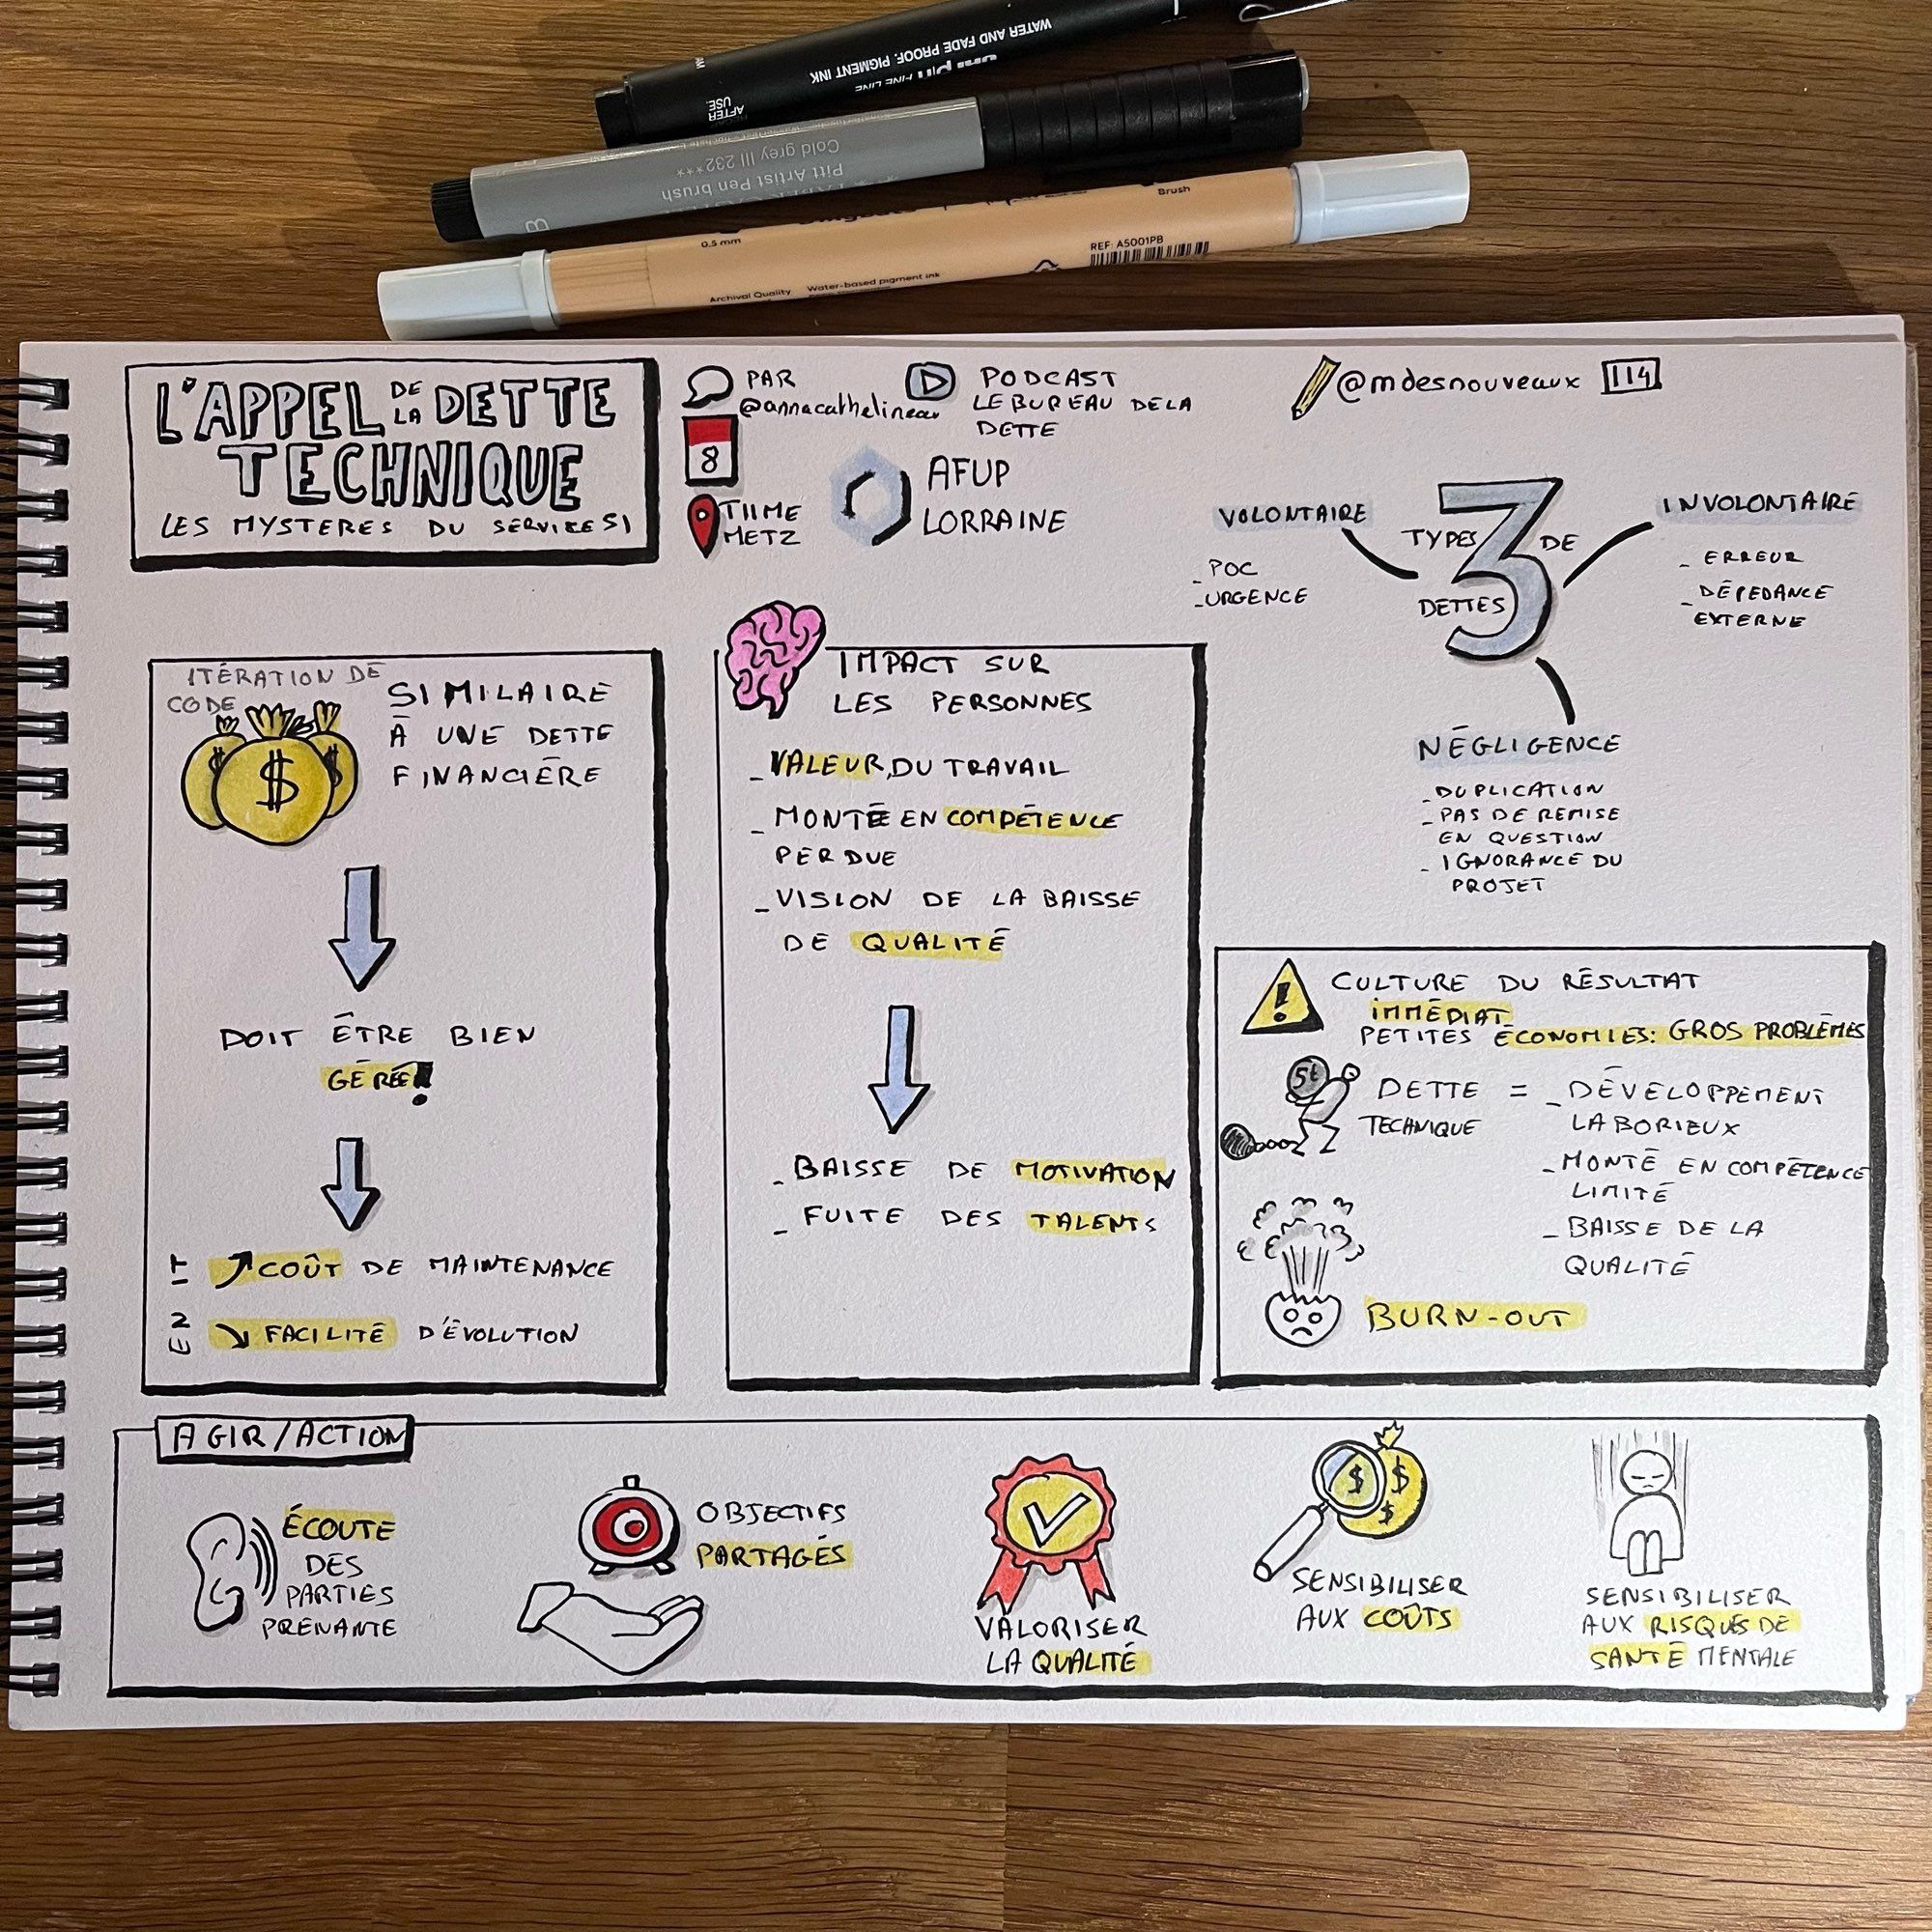 WATER AND FADE PROOF. PIGMENT INK
uni pin FINE LINE
AFTER
USE.
Pitt Artist Pen brush
Cold grey III 232***
B
0.5 mm
Brush
REF: AS001PB
Archival Quality
Water-based pigment ink
L'APPEL DE LA DETTE
TECHNIQUE
LES MYSTERES DU SERVICE SI
PAR
@annacathelineau
8
TIIME
METZ
PODCAST
LE BUREAU DE LA
DETTE
AFUP
LORRAINE
@mdesnouveaux 114
3
TYPES DE
DETTES
VOLONTAIRE
- POC
- URGENCE
INVOLONTAIRE
- ERREUR
- DÉPEDANCE
EXTERNE
NÉGLIGENCE
- DUPLICATION
- PAS DE REMISE
EN QUESTION
- IGNORANCE DU
PROJET
ITÉRATION DE
CODE
$ $ $
SIMILAIRE
À UNE DETTE
FINANCIÈRE
DOIT ÊTRE BIEN
GÉRÉE!
COÛT DE MAINTENANCE
FACILITÉ D'ÉVOLUTION
IMPACT SUR
LES PERSONNES
- VALEUR DU TRAVAIL
- MONTÉE EN COMPÉTENCE
PERDUE
- VISION DE LA BAISSE
DE QUALITÉ
- BAISSE DE MOTIVATION
- FUITE DES TALENTS
! CULTURE DU RÉSULTAT
IMMÉDIAT
PETITES ÉCONOMIES: GROS PROBLÈMES
5t
DETTE
TECHNIQUE
= - DÉVELOPPEMENT
LABORIEUX
- MONTÉ EN COMPÉTENCE
LIMITÉ
- BAISSE DE LA
QUALITÉ
BURN-OUT
AGIR/ACTION
ÉCOUTE
DES
PARTIES
PRENANTE
OBJECTIFS
PARTAGÉS
VALORISER
LA QUALITÉ
$ $ $
SENSIBILISER
AUX COÛTS
SENSIBILISER
AUX RISQUES DE
SANTÉ MENTALE